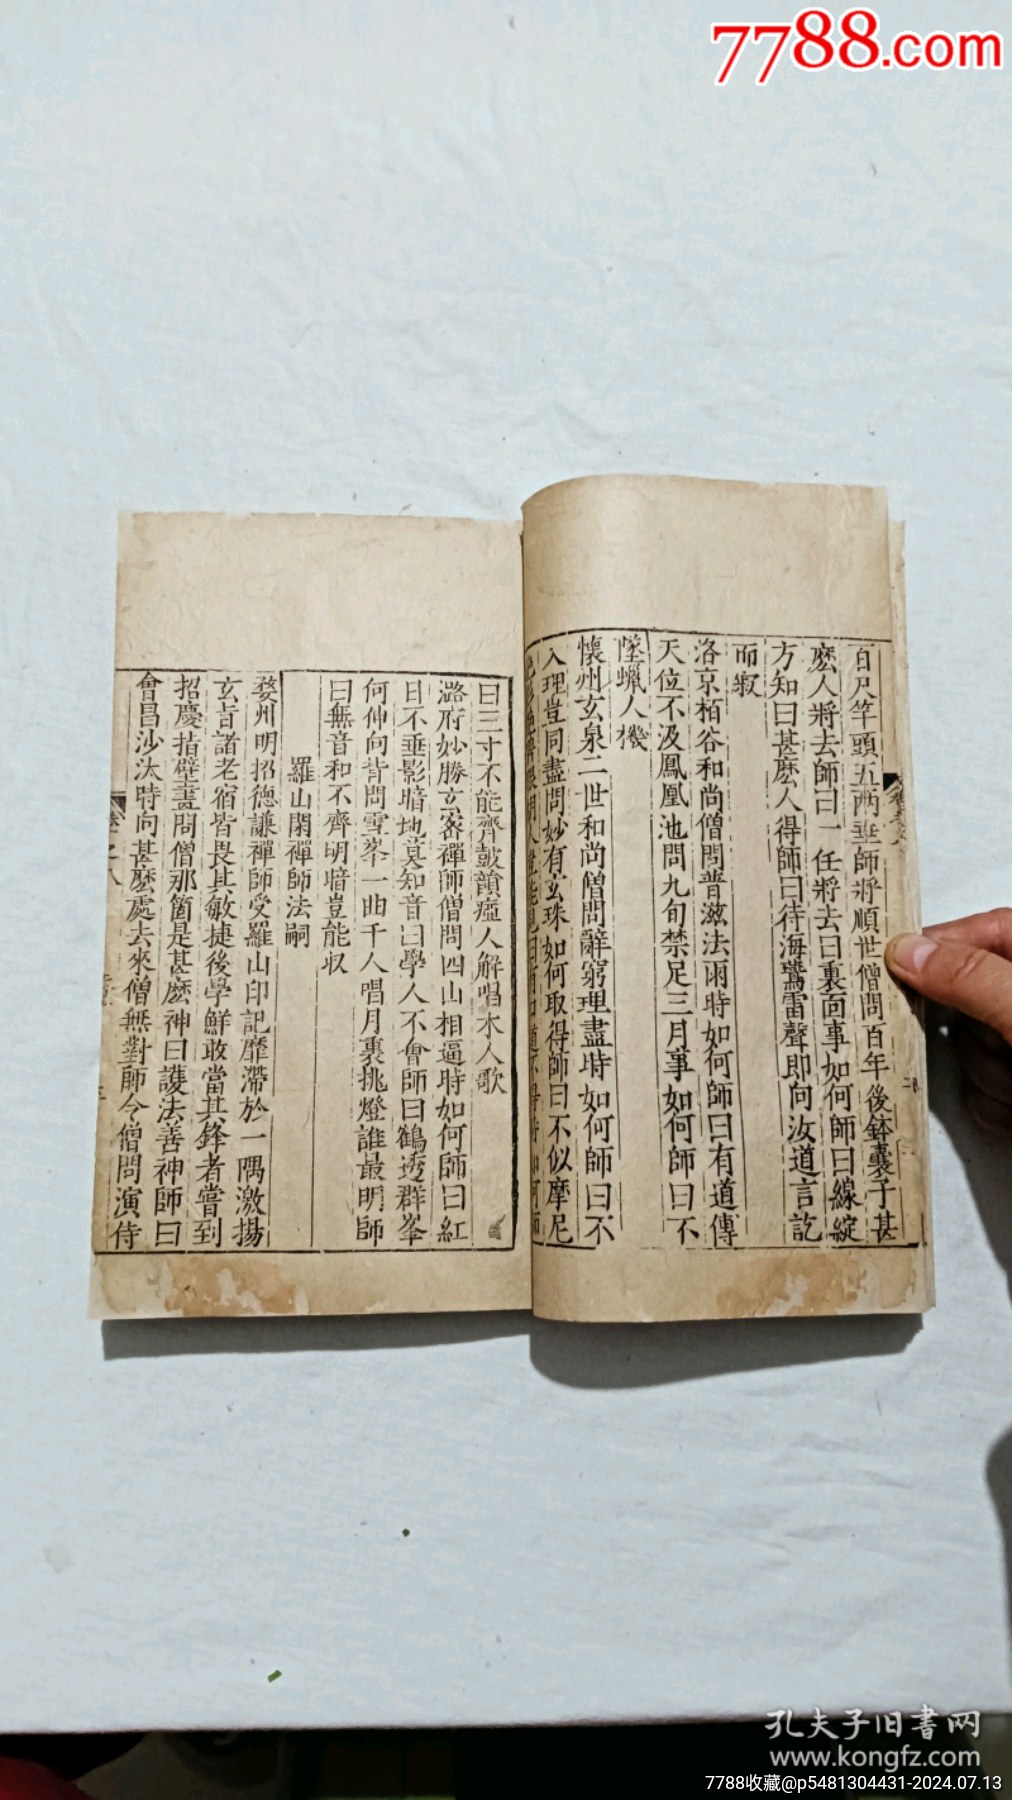 7788.com
百尺竿頭五兩垂師將順世僧問百年後鉢囊子甚
麽人將去師曰一任將去曰裏面事如何師曰線綻
方知曰甚麽人得師曰待海鷰雷聲即向汝道言訖
而寂
洛京栢谷和尚僧問普滋法雨時如何師曰有道傳
天位不汲鳳凰池問九旬禁足三月事如何師曰不
墜蠟人機
懷州玄泉二世和尚僧問辭窮理盡時如何師曰不
入理豈同盡問妙有玄珠如何取得師曰不似摩尼
曰三寸不能齊鼓韻瘂人解唱木人歌
潞府妙勝玄密禪師僧問四山相逼時如何師曰紅
日不垂影暗地莫知音曰學人不會師曰鶴透群峯
何伸向背問雪峯一曲千人唱月裏挑燈誰最明師
曰無音和不齊明暗豈能収
羅山閑禪師法嗣
婺州明招德謙禪師受羅山印記靡滯於一隅激揚
玄旨諸老宿皆畏其敏捷後學鮮敢當其鋒者嘗到
招慶指壁畫問僧那箇是甚麽神曰護法善神師曰
會昌沙汰時向甚麽處去來僧無對師令僧問演侍
卷之八
孔夫子旧書网
www.kongfz.com
7788收藏@p5481304431-2024.07.13